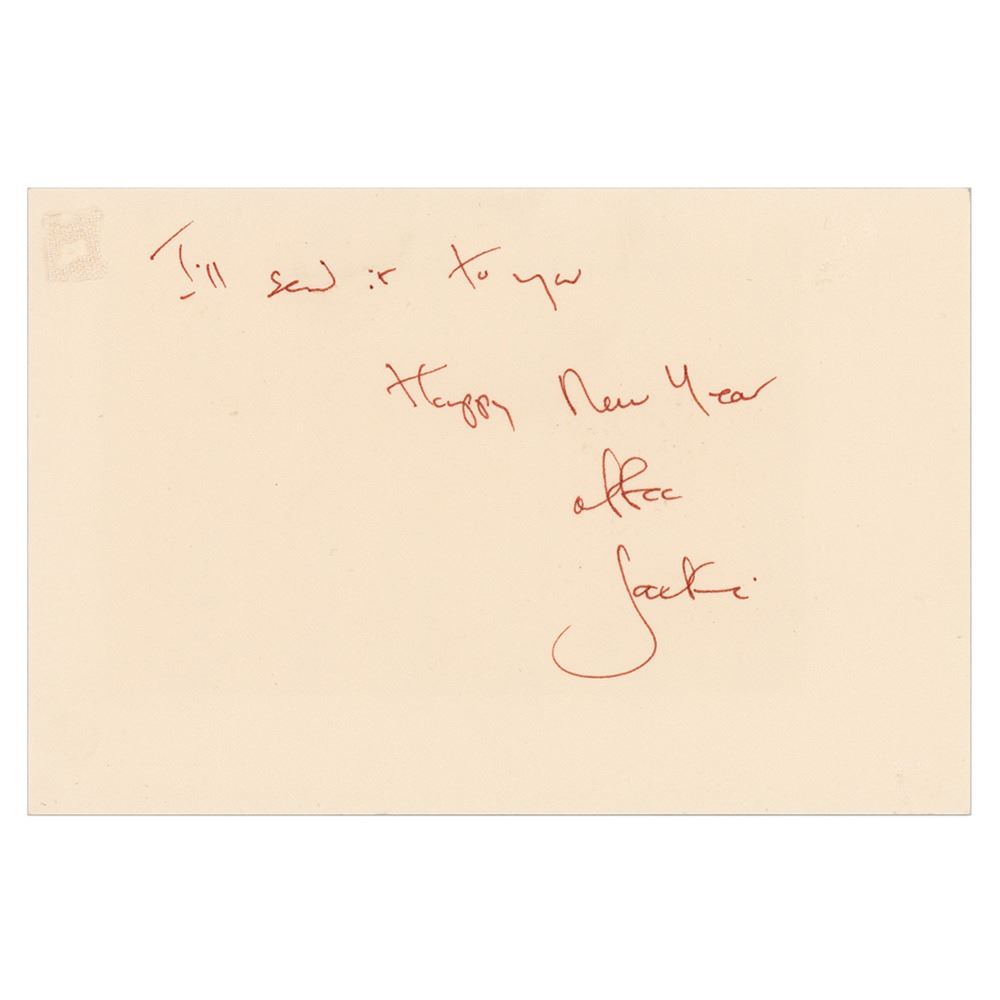 I'll send it to you
Happy New Year
affec
Jackie